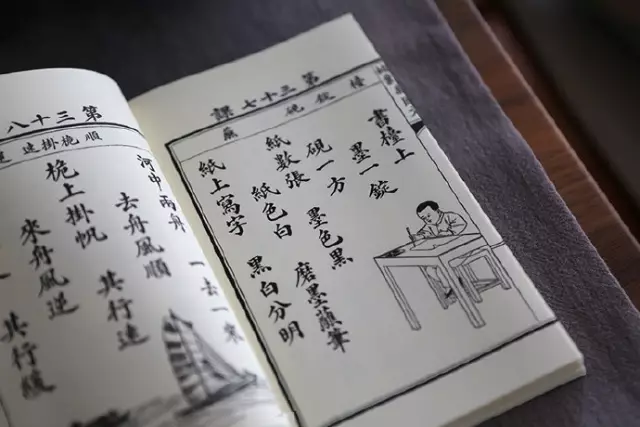 第三十七課
檯錠硯蘸
書檯上
墨一錠
硯一方
紙數張
墨色黑
紙色白
磨墨蘸筆
紙上寫字
黑白分明
第三十八
順桅掛速
河中兩舟
一去一來
去舟風順
桅上掛帆
其行速
來舟風逆
其行緩